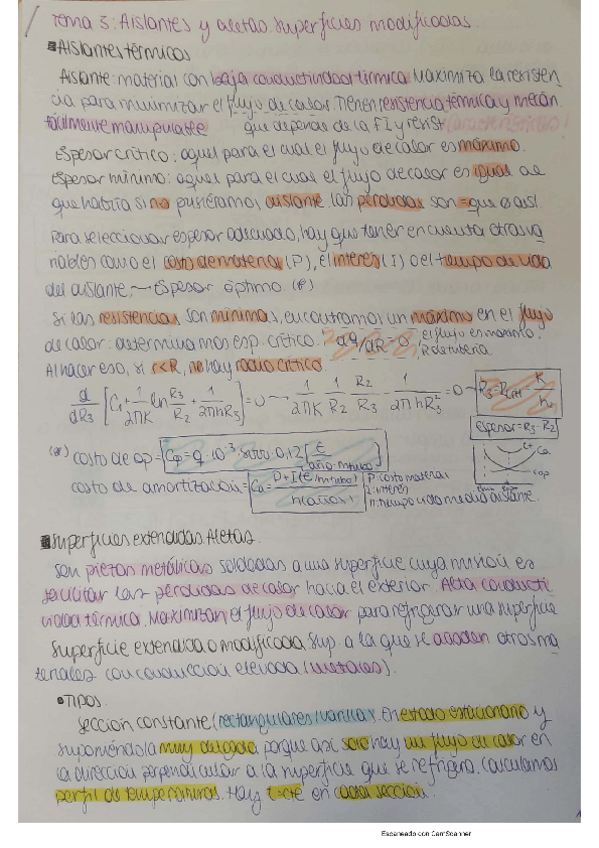 Tema 3: Aislantes y aletas. Superficies modificadas.
Aislantes térmicos
Aislante: material con baja conductividad térmica. Maximiza la resisten
cia para minimizar el flujo de calor. Tienen resistencia térmica y mecán.
fácilmente manipulable que depende de la
Espesor crítico: aquel para el cual el flujo de calor es máximo.
Espesor mínimo: aquel para el cual el flujo de calor es igual al
que habría si no pusiéramos aislante. Las pérdidas son = que s aisl
Para seleccionar espesor adecuado, hay que tener en cuenta otras va
riables como el costo de material (P), el interés (I) o el tiempo de vida
del aislante. → Espesor óptimo. (*)
Si las resistencias son mínimas, encontramos un máximo en el flujo
de calor: determinamos esp. crítico. dq/dR = 0 el flujo es máximo.
R de tubería
Al hacer eso, si rc<R, no hay radio crítico.
d/dR3 [C1 + 1/2πK ln R3/R2 + 1/2πhR3] = 0 → 1/2πK 1/R2 R2/R3 - 1/2πhR3² = 0 → R3 = Rcrit = K/h
Espesor = R3 - R2
(*) costo de op = Cop = q · 10⁻³ · 0,12 [€/año·m tubo]
costo de amortización = Ca = P+I (€/m tubo) / n (años) P: costo material
I: interés
n: tiempo vida medio aislante.
Ct
Ca
Cop
Superficies extendidas Aletas.
Son piezas metálicas soldadas a una superficie cuya misión es
facilitar las pérdidas de calor hacia el exterior. Alta conducti
vidad térmica. Maximizan el flujo de calor para refrigerar una superficie
Superficie extendida o modificada. Sup. a la que se añaden otros ma
teriales con conducción elevada (metales).
TIPOS.
Sección constante (rectangulares/varillas). En estado estacionario y
suponiéndola muy delgada porque así solo hay un flujo de calor en
la dirección perpendicular a la superficie que se refrigera. Calculamos
perfil de temperaturas. Hay T cte en cada sección.
Escaneado con CamScanner